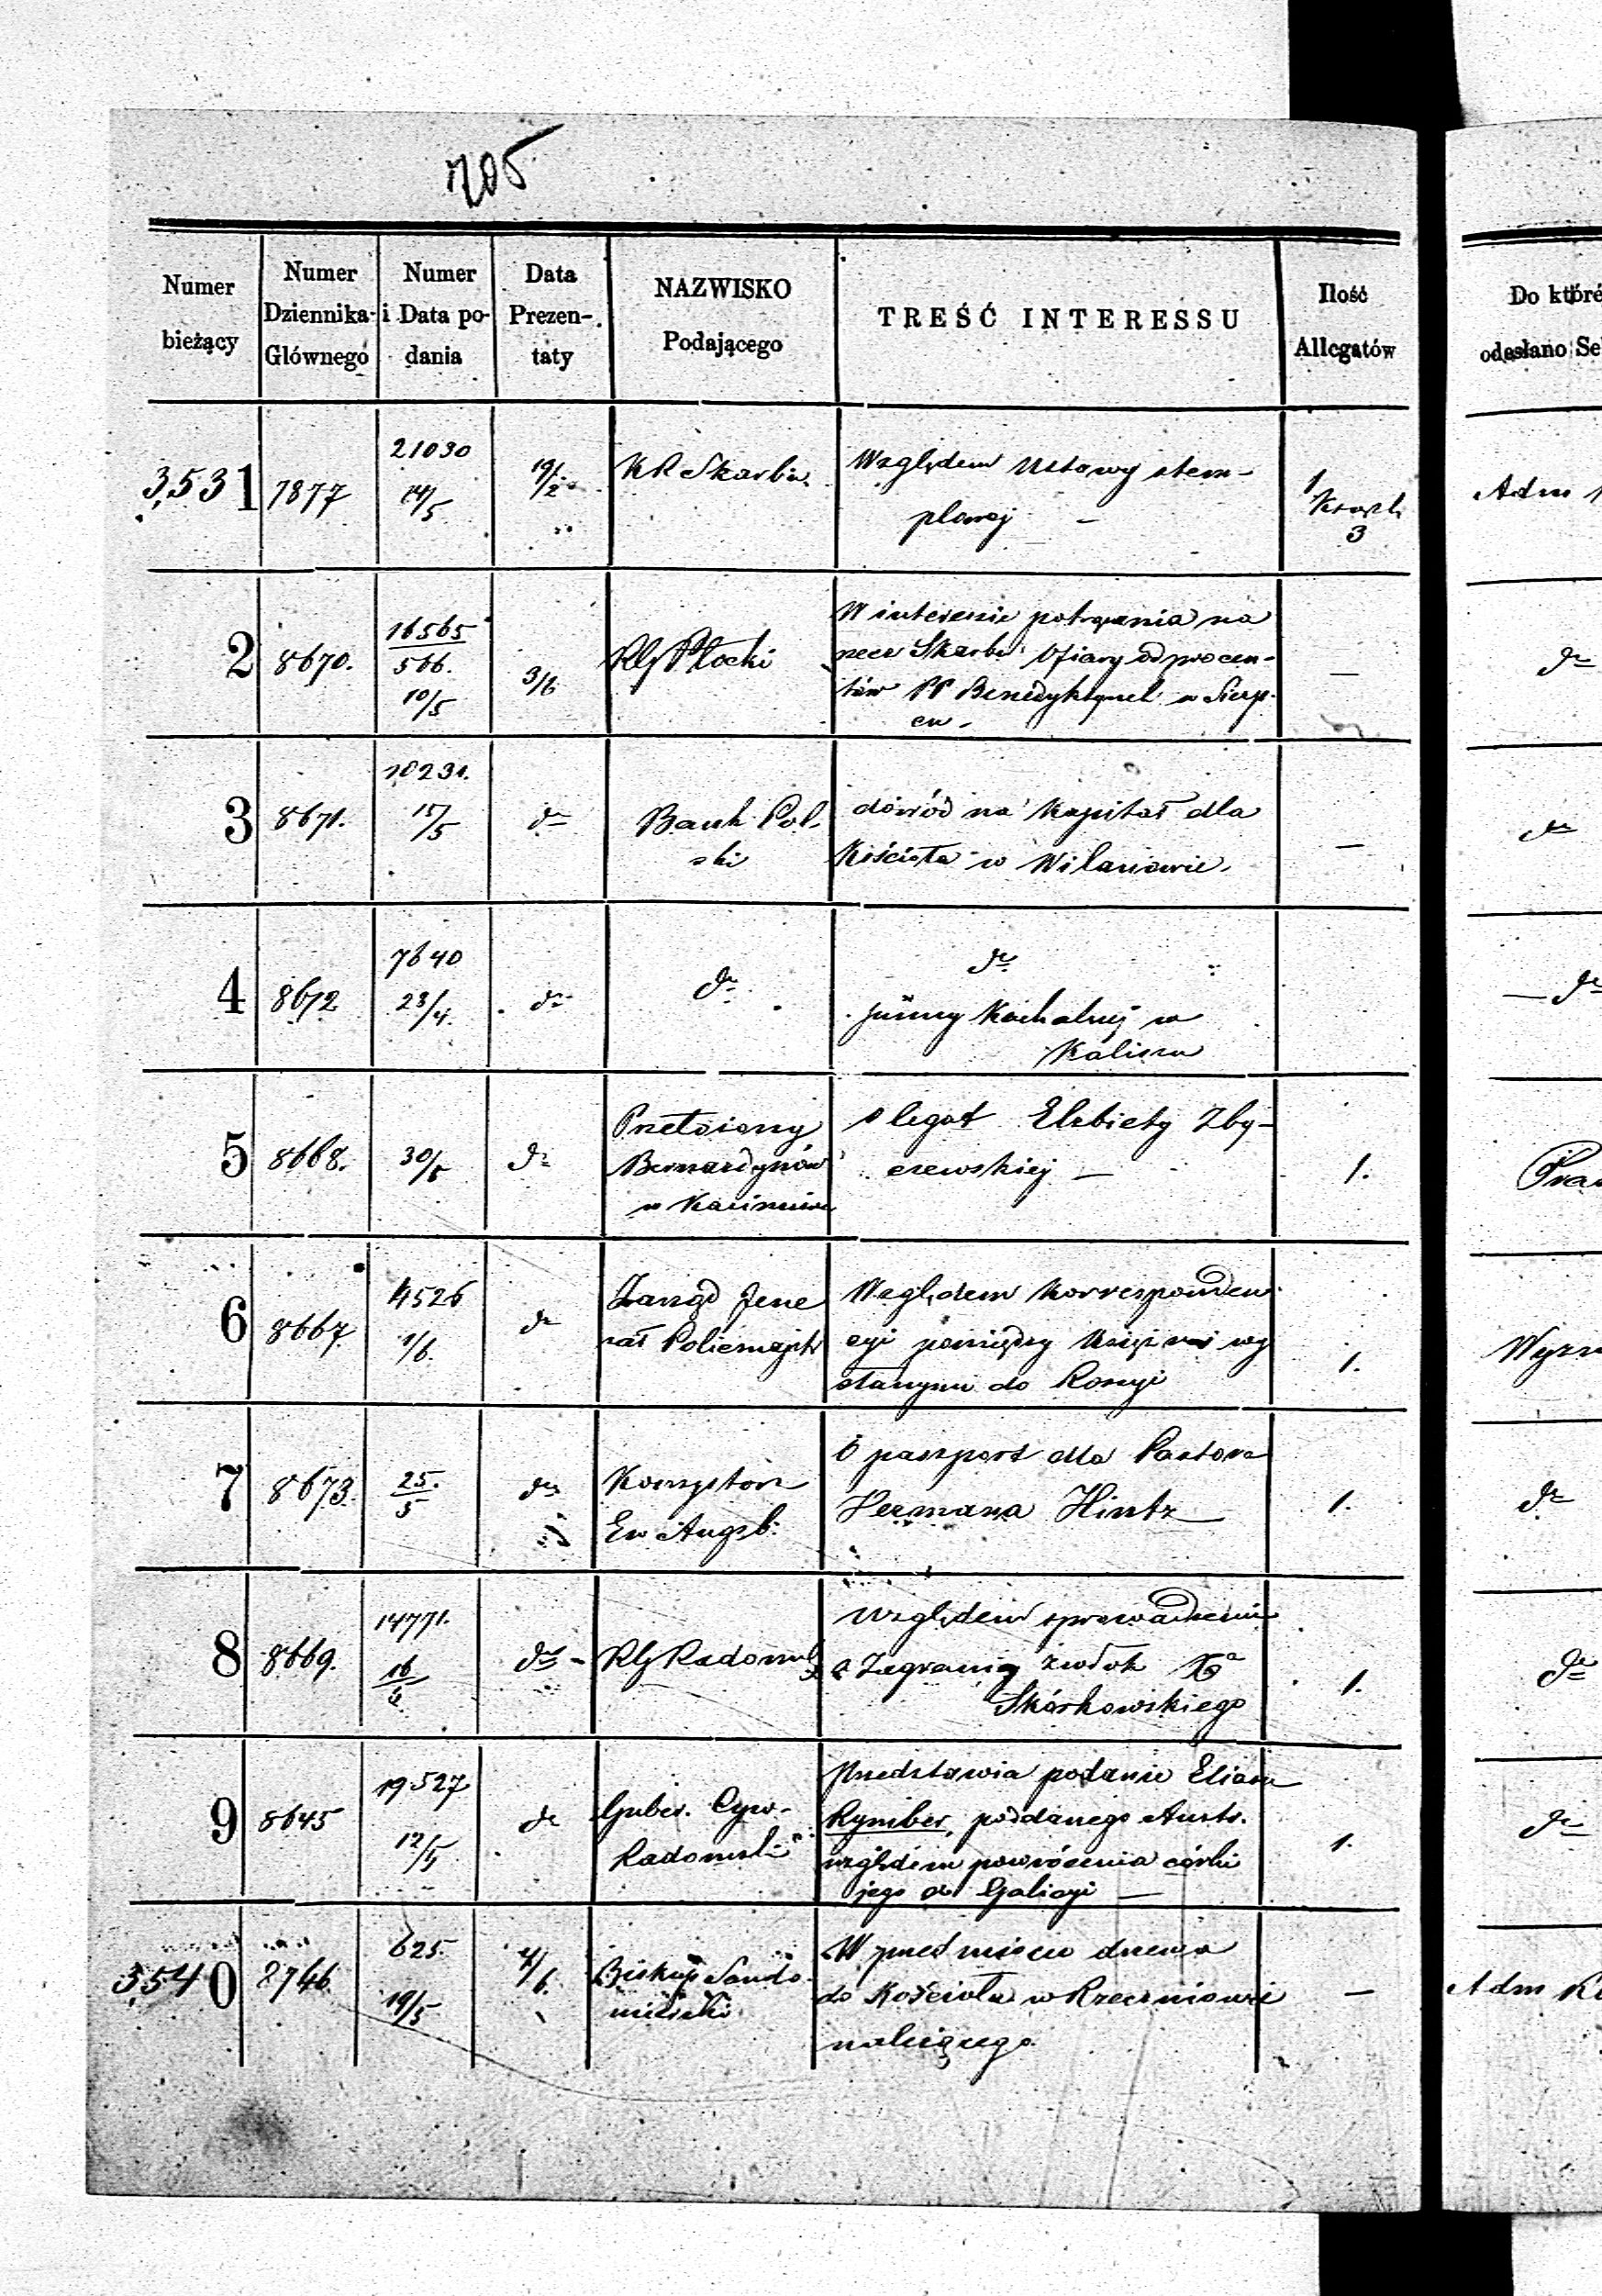 705
Numer bieżący | Numer Dziennika Głównego | Numer i Data podania | Data Prezentaty | NAZWISKO Podającego | TREŚĆ INTERESSU | Ilość Allegatów | Do któré odesłano Se
3531 | 7877 | 21030 14/5 | 19/2 | KR Skarbu | Względem Ustawy stem-
plowej — | 1 Książk 3 | Adm
2 | 8670. | 16565 566. 10/5 | 3/6 | RG Płocki | W interesie potrącenia na
rzecz Skarbu Ofiary od procen-
tów PP Benedyktynek w Sierp-
cu. | — | do
3 | 8671. | 10231. 15/5 | do | Bank Pol-
ski | dowód na Kapitał dla
Kościoła w Wilanowie. | — | do
4 | 8672 | 7640 23/4. | do | do | do
Kaliszu | — do
5 | 8668. | 30/5 | do | Przełożony
Bernardynów
w Kazimierzu | o legat Elzbiety Zby-
szewskiej — | 1. | Pra
6 | 8667. | 4526 1/6. | do | Zarząd Jene
rał Policmajstr | Względem Korresponden-
cyi pomiędzy Księżmi wy
słanymi do Rossyi | 1. | Wyzn
7 | 8673. | 25. 5 | do | Konsystorz
Ew Augsb: | O paszport dla Pastora
Hermana Hintz — | 1. | do
8 | 8669. | 14771. 16/5 | do - | RG Radomsk | względem sprowadzenia
z Zagranicy zwłok Xa
Skórkowskiego | 1. | do
9 | 8645 | 19527 12/5 | do | Guber. Cyw-
Radomski | Przedstawia podanie Eliasza
Rymber, poddanego Austr.
względem powrócenia córki
jego do Galicyi — | 1. | do
3540 | 8746 | 625. 19/5 | 4/6. | Biskup Sando-
mierski | W przedmiocie drzewa
do Kościoła w Rzeczniowie
należącego. | — | Adm